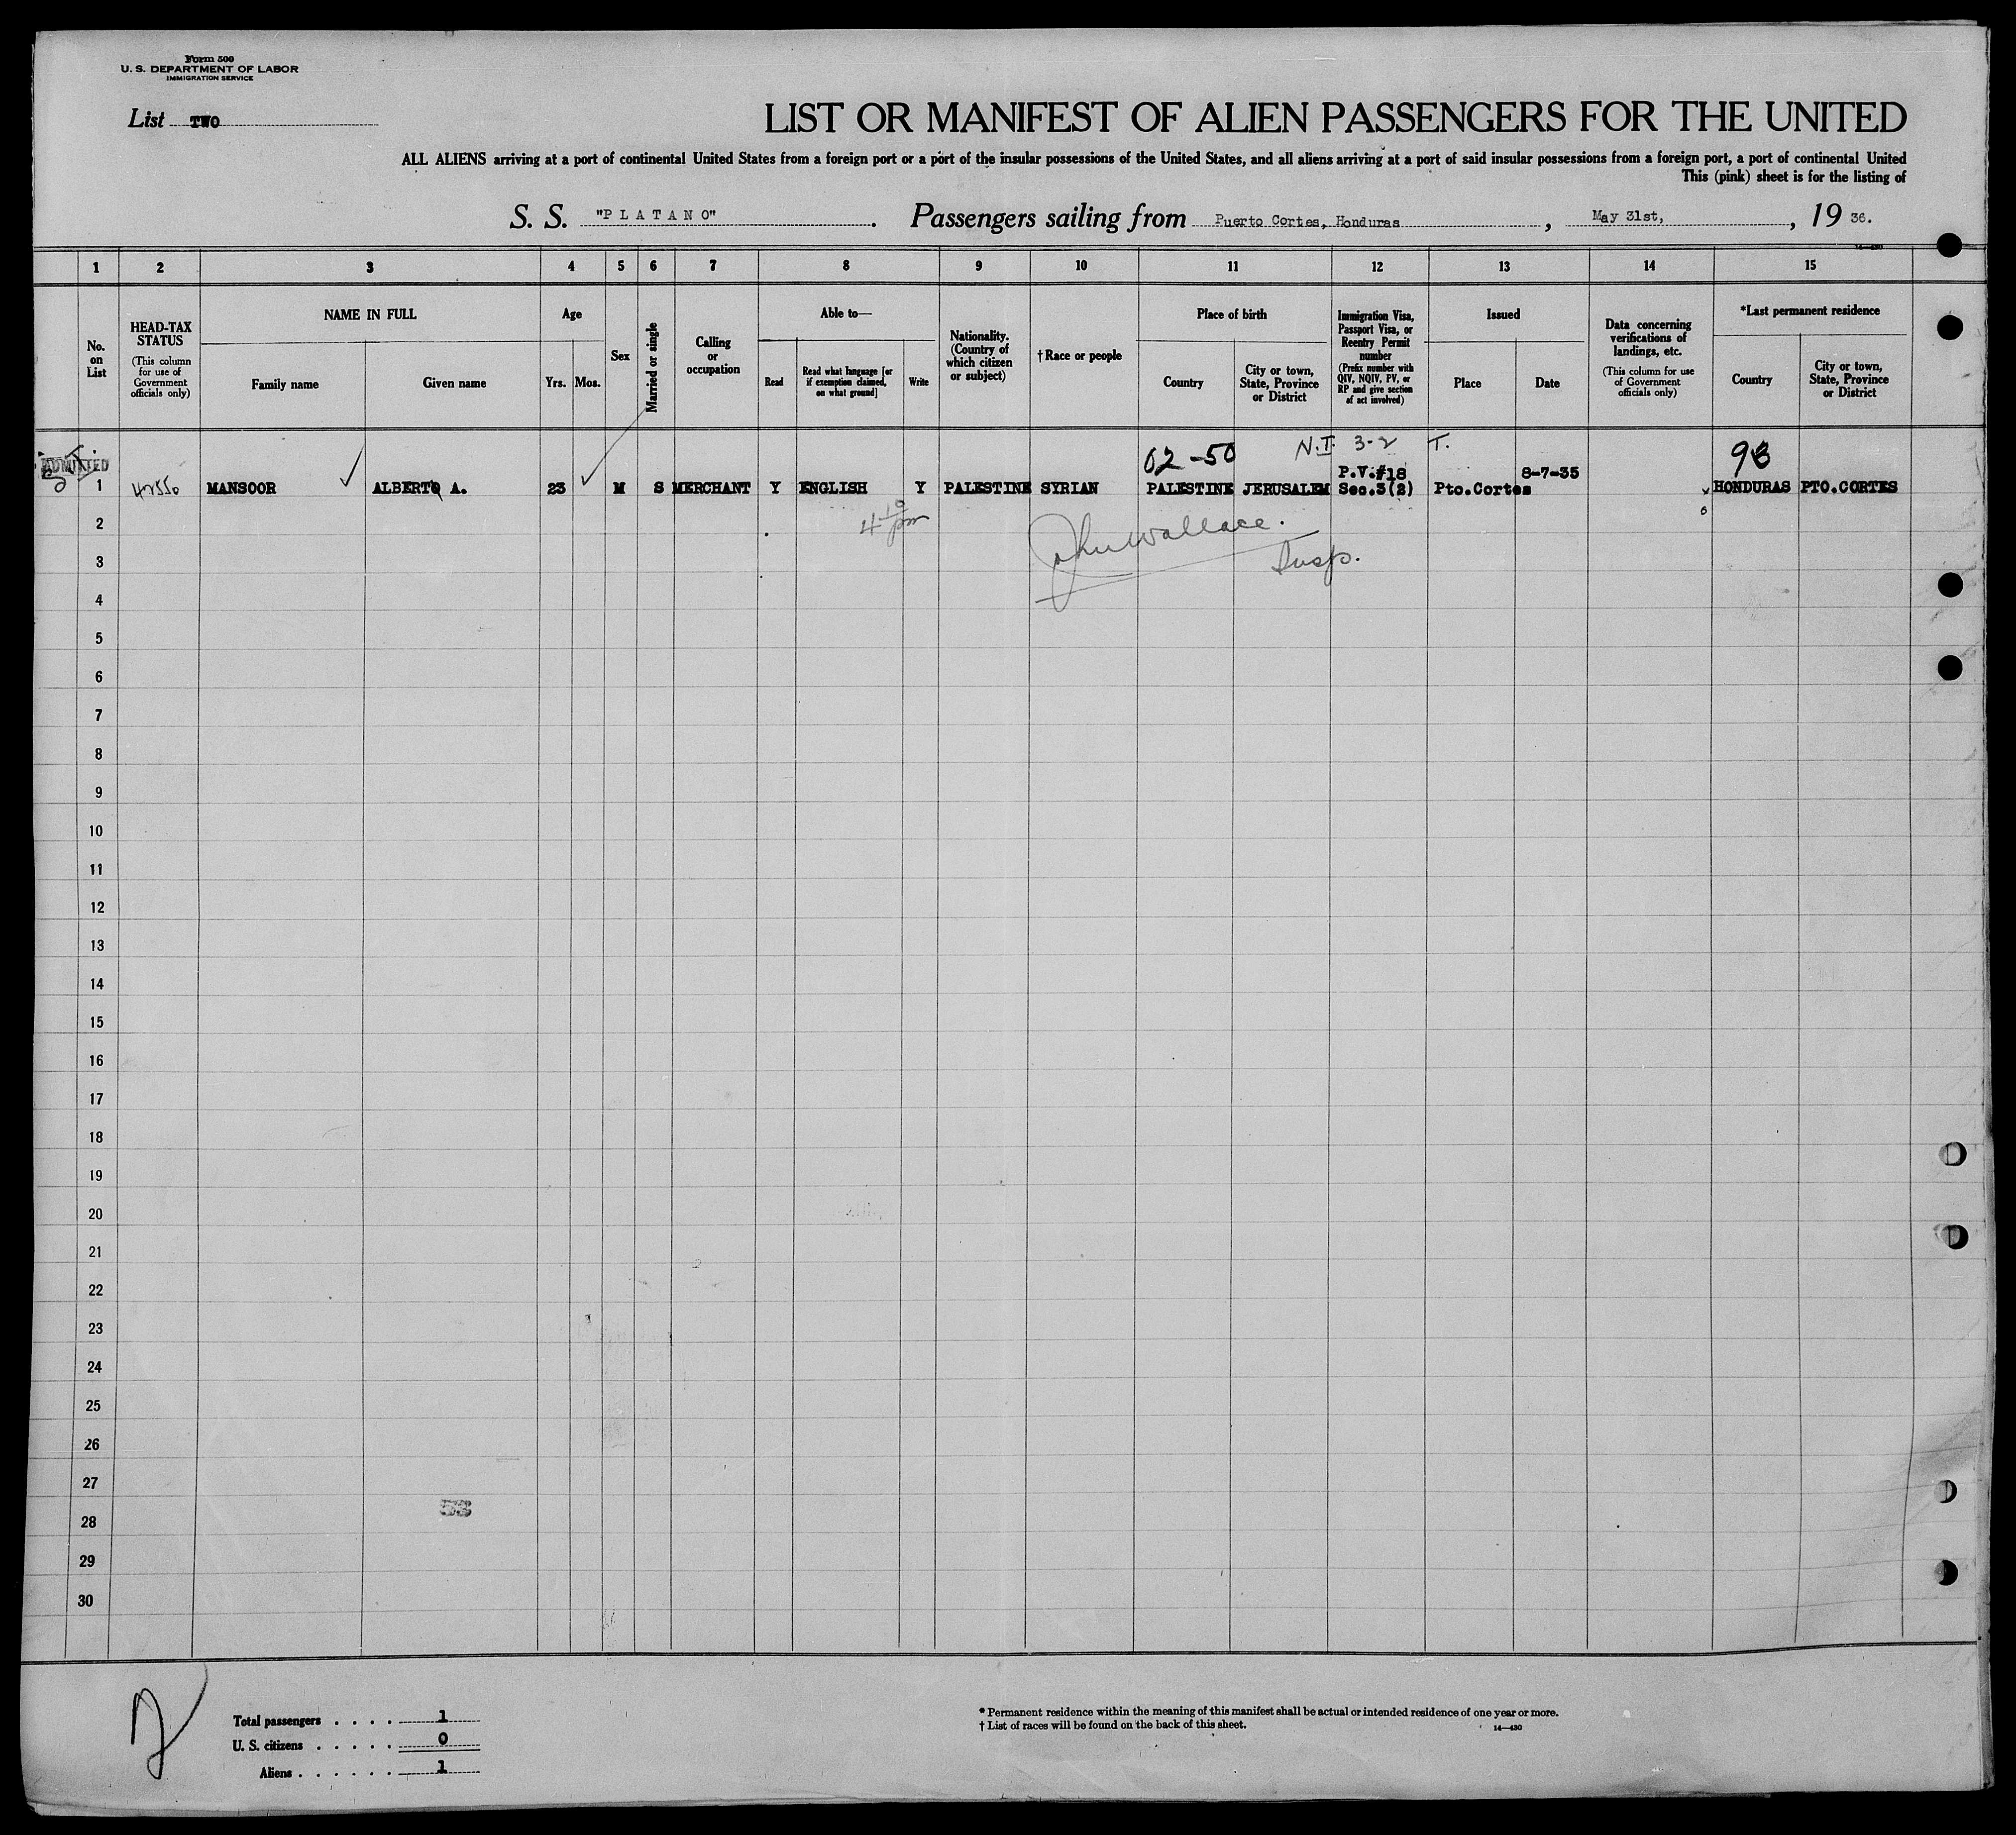 Form 500
U. S. DEPARTMENT OF LABOR
IMMIGRATION SERVICE
List TWO
LIST OR MANIFEST OF ALIEN PASSENGERS FOR THE UNITED
ALL ALIENS arriving at a port of continental United States from a foreign port or a port of the insular possessions of the United States, and all aliens arriving at a port of said insular possessions from a foreign port, a port of continental United
This (pink) sheet is for the listing of
S. S. "P L A T A N O". Passengers sailing from Puerto Cortes, Honduras, May 31st, , 19 36.
1 2 3 4 5 6 7 8 9 10 11 12 13 14 15
No. on List
HEAD-TAX STATUS
(This column for use of Government officials only)
NAME IN FULL
Family name
Given name
Age
Yrs.
Mos.
Sex
Married or single
Calling or occupation
Able to—
Read
Read what language [or if exemption claimed, on what ground]
Write
Nationality. (Country of which citizen or subject)
†Race or people
Place of birth
Country
City or town, State, Province or District
Immigration Visa, Passport Visa, or Reentry Permit number
(Prefix number with QIV, NQIV, PV, or RP and give section of act involved)
Issued
Place
Date
Data concerning verifications of landings, etc.
(This column for use of Government officials only)
*Last permanent residence
Country
City or town, State, Province or District
02-50 N.T. 3-2 T. 98
ADMITTED
P.V.#18 8-7-35
1 MANSOOR ALBERTO A. 23 M S MERCHANT Y ENGLISH Y PALESTINE SYRIAN PALESTINE JERUSALEM Sec.3(2) Pto.Cortes HONDURAS PTO.CORTES
2 4 10 pm John Wallace.
3 Insp.
4
5
6
7
8
9
10
11
12
13
14
15
16
17
18
19
20
21
22
23
24
25
26
27
28
29
30
2
Total passengers . . . . 1
U. S. citizens . . . . . 0
Aliens . . . . . . 1
* Permanent residence within the meaning of this manifest shall be actual or intended residence of one year or more.
† List of races will be found on the back of this sheet. 14—430